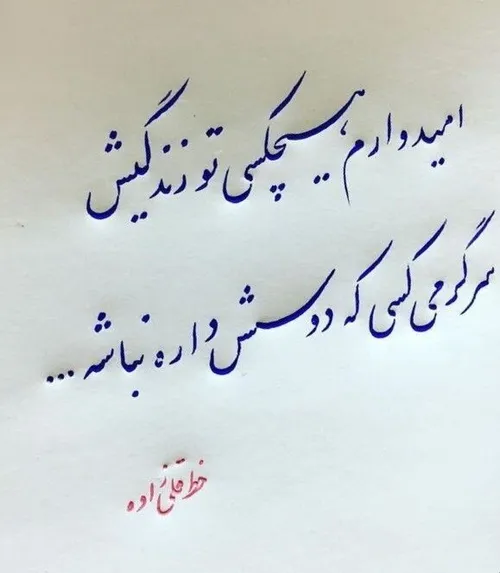 امیدوارم، هیچکسی تو زندگیش
سرگرمی کسی که دوسش داره نباشه...
خط قلی‌زاده